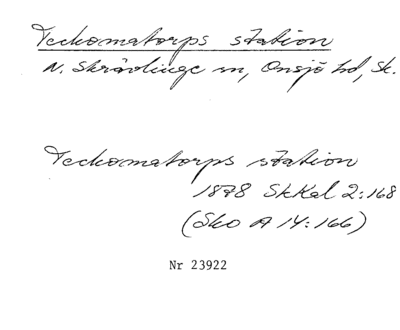 Teckomatorps station
N. Skrävlinge sn, Onsjö hd, Sk.
Teckomatorps station
1878 SkKal 2:168
(Sko A 14:166)
Nr 23922